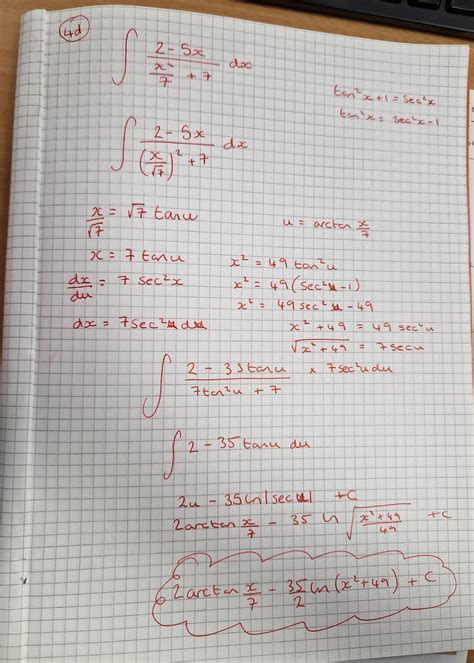 4d
∫ (2 - 5x)/(x²/7 + 7) dx
tan²x + 1 = sec²x
tan²x = sec²x - 1
∫ (2 - 5x)/((x/√7)² + 7) dx
x/√7 = √7 tanu
u = arctan x/7
x = 7 tanu
x² = 49 tan²u
dx/du = 7 sec²x
x² = 49 (sec²u - 1)
x² = 49 sec²u - 49
dx = 7sec²u du
x² + 49 = 49 sec²u
√(x² + 49) = 7secu
∫ (2 - 35tanu)/(7tan²u + 7) × 7sec²u du
∫ 2 - 35tanu du
2u - 35ln|secu| + C
2arctan x/7 - 35 ln √((x² + 49)/49) + C
2arctan x/7 - 35/2 ln(x² + 49) + C